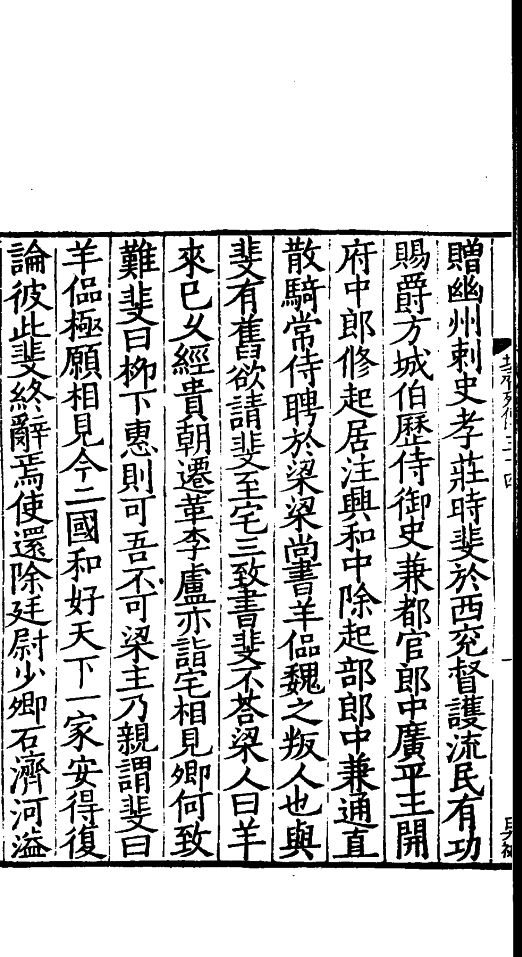 贈幽州刺史孝莊時斐於西兖督護流民有功
賜爵方城伯歷侍御史兼都官郎中廣平王開
府中郎修起居注興和中除起部郎中兼通直
散騎常侍聘於梁梁尚書羊偘魏之叛人也與
斐有舊欲請斐至宅三致書斐不荅梁人曰羊
來已久經貴朝遷革李盧亦詣宅相見卿何致
難斐曰柳下惠則可吾不可梁主乃親謂斐曰
羊偘極願相見今二國和好天下一家安得復
論彼此斐終辭焉使還除廷尉少卿石濟河溢